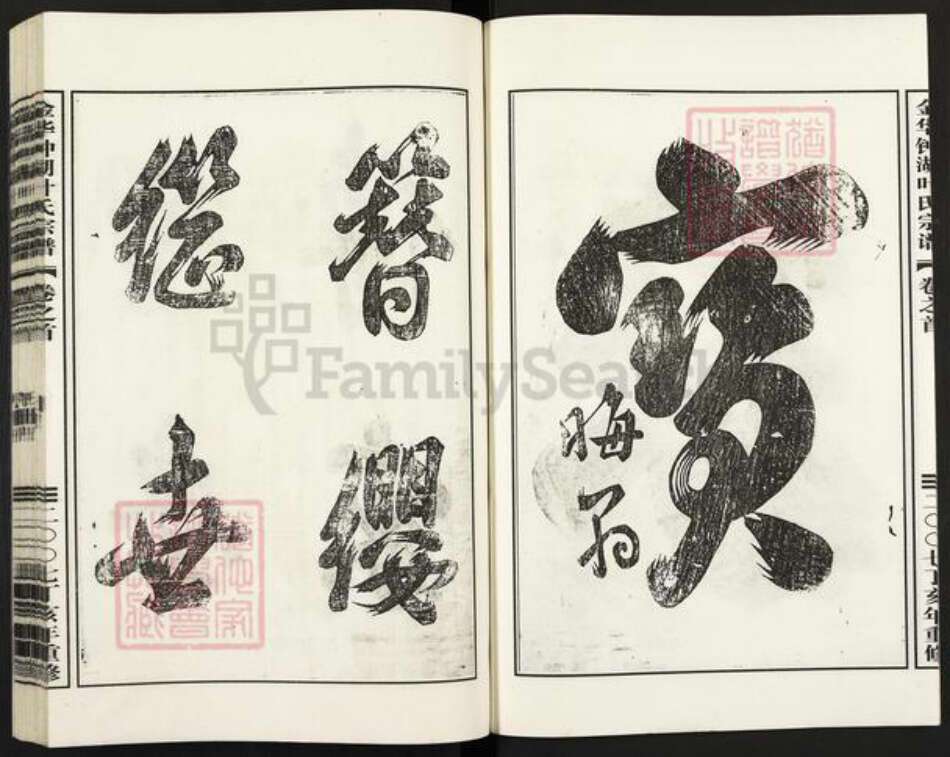 金华钟湖叶氏宗谱
卷之首
二〇〇七丁亥年重修
寶
晦翁
簪纓
世
金华钟湖叶氏宗谱
卷之首
二〇〇七丁亥年重修
FamilySearch